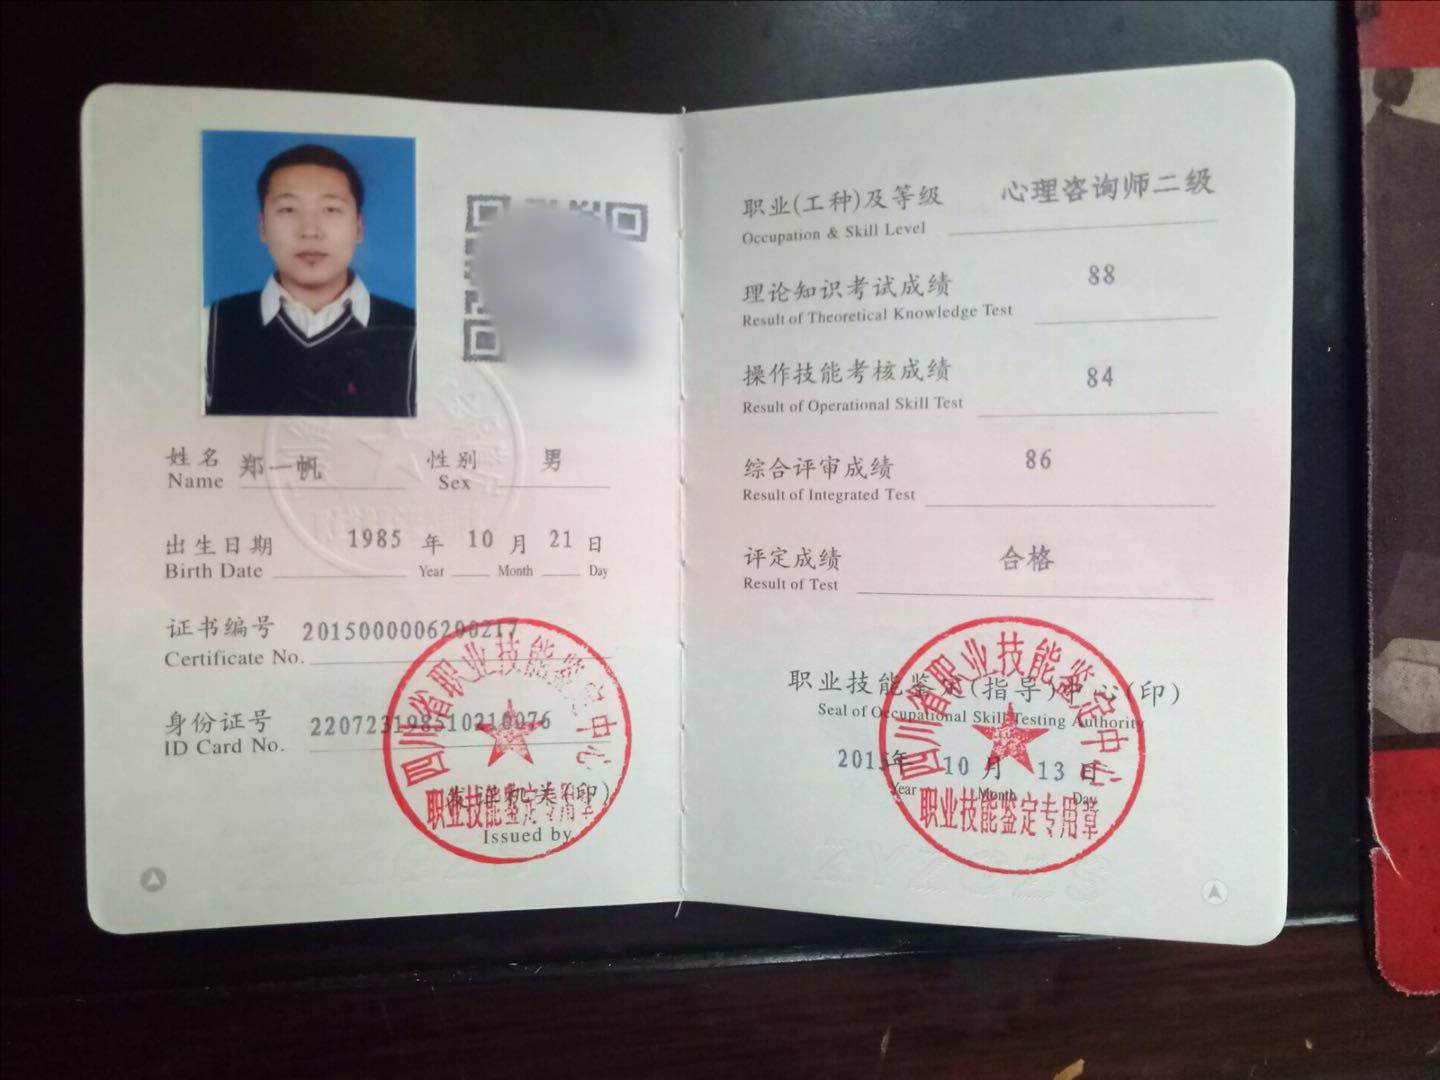 姓名 郑一帆 性别 男
Name Sex
出生日期 1985 年 10 月 21 日
Birth Date Year Month Day
证书编号 2015000006290217
Certificate No.
身份证号 220723198510210076
ID Card No.
发证机关(印)
Issued by
四川省职业技能鉴定中心
职业技能鉴定专用章
职业(工种)及等级 心理咨询师二级
Occupation & Skill Level
理论知识考试成绩 88
Result of Theoretical Knowledge Test
操作技能考核成绩 84
Result of Operational Skill Test
综合评审成绩 86
Result of Integrated Test
评定成绩 合格
Result of Test
职业技能鉴定(指导)中心(印)
Seal of Occupational Skill Testing Authority
2015 年 10 月 13 日
Year Month Day
四川省职业技能鉴定中心
职业技能鉴定专用章
ZYZGZS